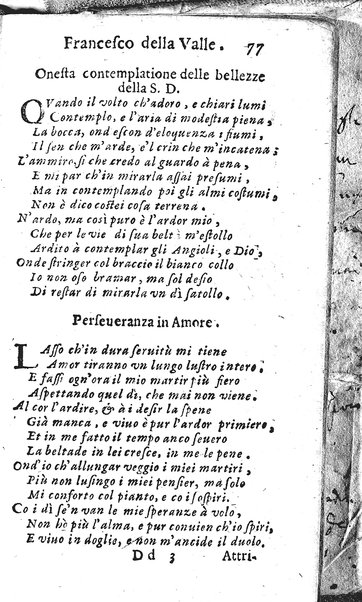 Francesco della Valle. 77
Onesta contemplatione delle bellezze
della S. D.
QVando il volto ch'adoro, e chiari lumi
Contemplo, e l'aria di modestia piena,
La bocca, ond'escon d'eloquenza i fiumi,
Il sen che m'arde, e'l crin che m'incatena;
L'ammiro, sì che credo al guardo à pena,
E mi par ch'in mirarla assai presumi,
Ma in contemplando poi gli almi costumi,
Non è dico costei cosa terrena.
N'ardo, ma così puro è l'ardor mio,
Che per le vie di sua beltà m'estollo
Ardito à contemplar gli Angioli, e Dio,
Onde stringer col braccio il bianco collo
Io non oso bramar, ma sol desio
Di restar di mirarla vn dì satollo.
Perseueranza in Amore.
LAsso ch'in dura seruitù mi tiene
Amor tiranno vn lungo lustro intero.
E fassi ogn'ora il mio martir più fiero
Aspettando quel dì, che mai non viene.
Al cor l'ardire, & à i desir la spene
Già manca, e viuo è pur l'ardor primiero,
Et in me fatto il tempo anco seuero
La beltade in lei cresce, in me le pene.
Ond'io ch'allungar veggio i miei martiri,
Più non lusingo i miei pensier, ma solo
Mi conforto col pianto, e co i sospiri.
Co i dì se'n van le mie speranze à volo,
Non hò più l'alma, e pur conuien ch'io spiri,
E viuo in doglie, e non m'ancide il duolo.
D d 3 Attri-